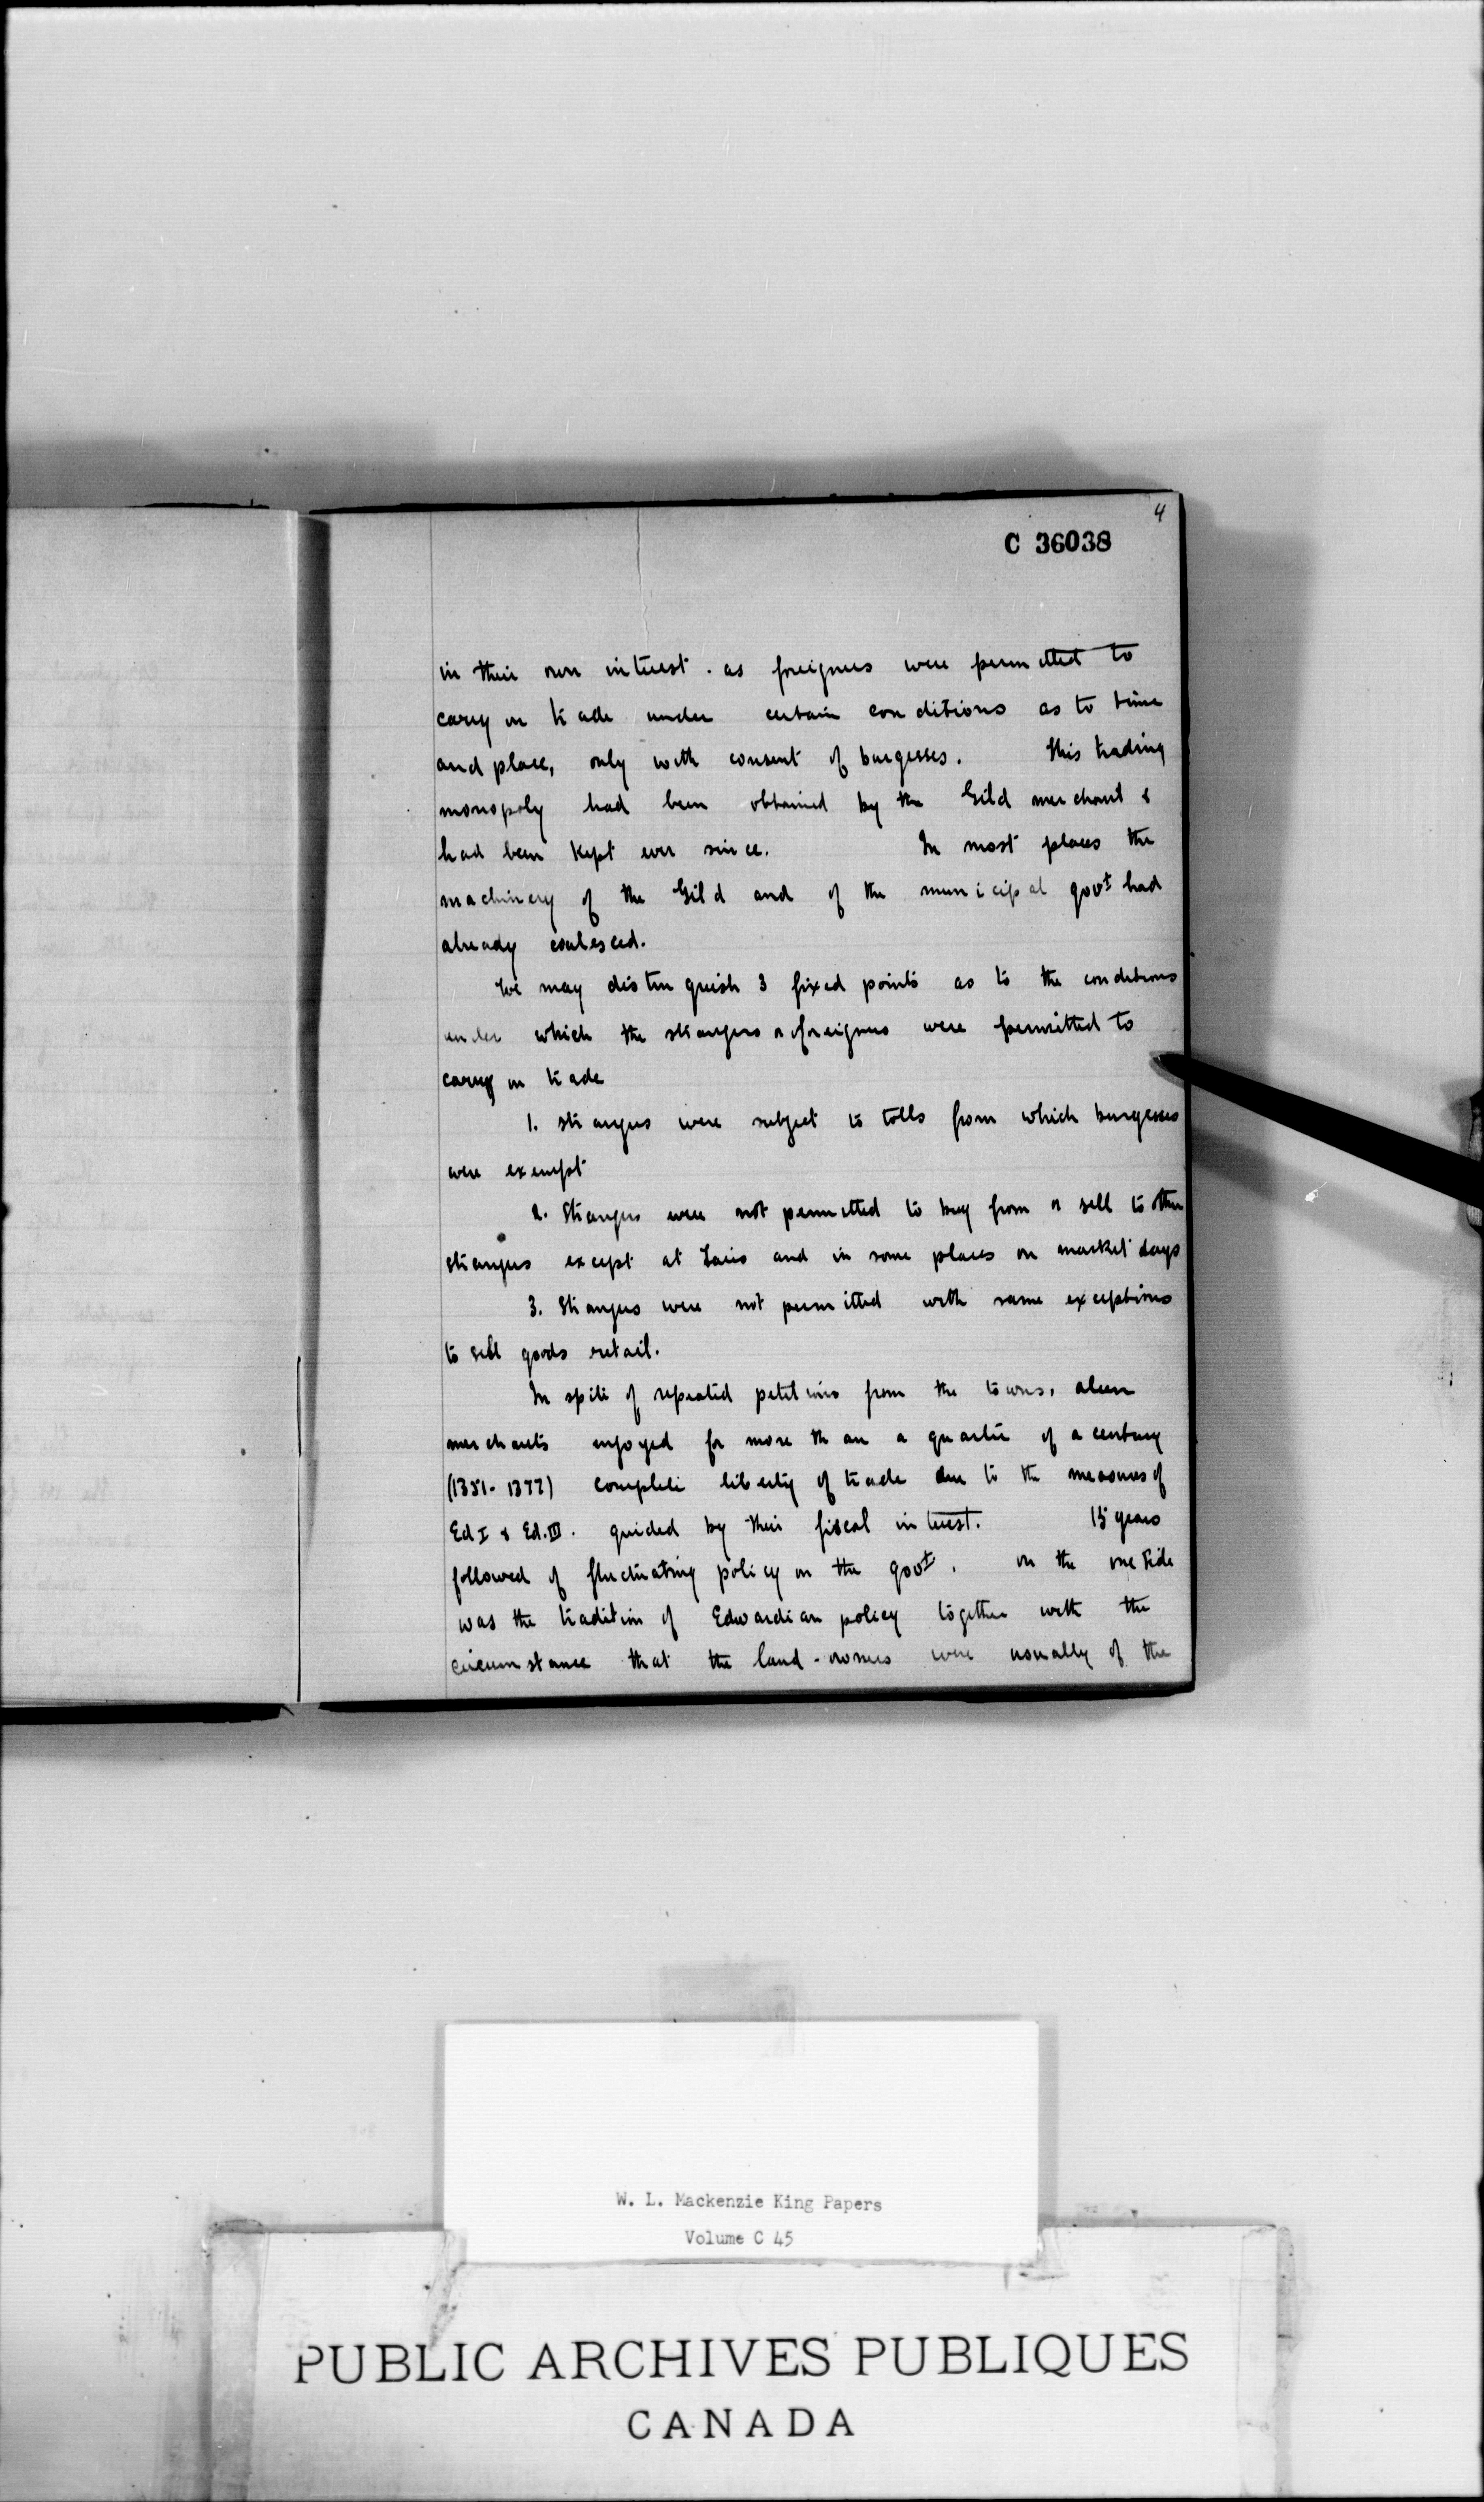 4
C 36038
in their own interest. as foreigners were permitted to
carry on trade under certain conditions as to time
and place, only with consent of burgesses. This trading
monopoly had been obtained by the Gild merchant &
had been kept ever since. In most places the
machinery of the Gild and of the municipal govt had
already coalesced.
We may distinguish 3 fixed points as to the conditions
under which the strangers or foreigners were permitted to
carry on trade
1. strangers were subject to tolls from which burgesses
were exempt
2. Strangers were not permitted to buy from or sell to other
strangers except at Fairs and in some places on market days
3. Strangers were not permitted with same exceptions
to sell goods retail.
In spite of repeated petitions from the towns, alien
merchants enjoyed for more than a quarter of a century
(1351-1377) complete liberty of trade due to the measures of
Ed I & Ed. III. guided by their fiscal interest. 15 years
followed of fluctuating policy on the govt. on the one side
was the tradition of Edwardian policy together with the
circumstance that the land-owners were usually of the
W. L. Mackenzie King Papers
Volume C 45
PUBLIC ARCHIVES PUBLIQUES
CANADA